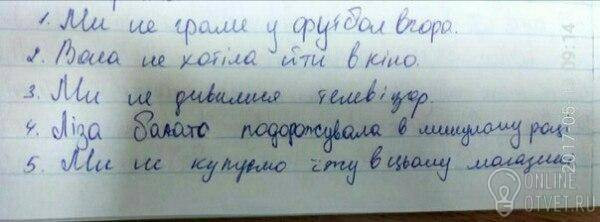 1. Ми не грали у футбол вчора.
2. Вона не хотіла йти в кіно.
3. Ми не дивилися телевізор.
4. Ліза багато подорожувала в минулому році
5. Ми не купуємо їжу в цьому магазині
2017-05 09:14
ONLINE
OTVET.RU